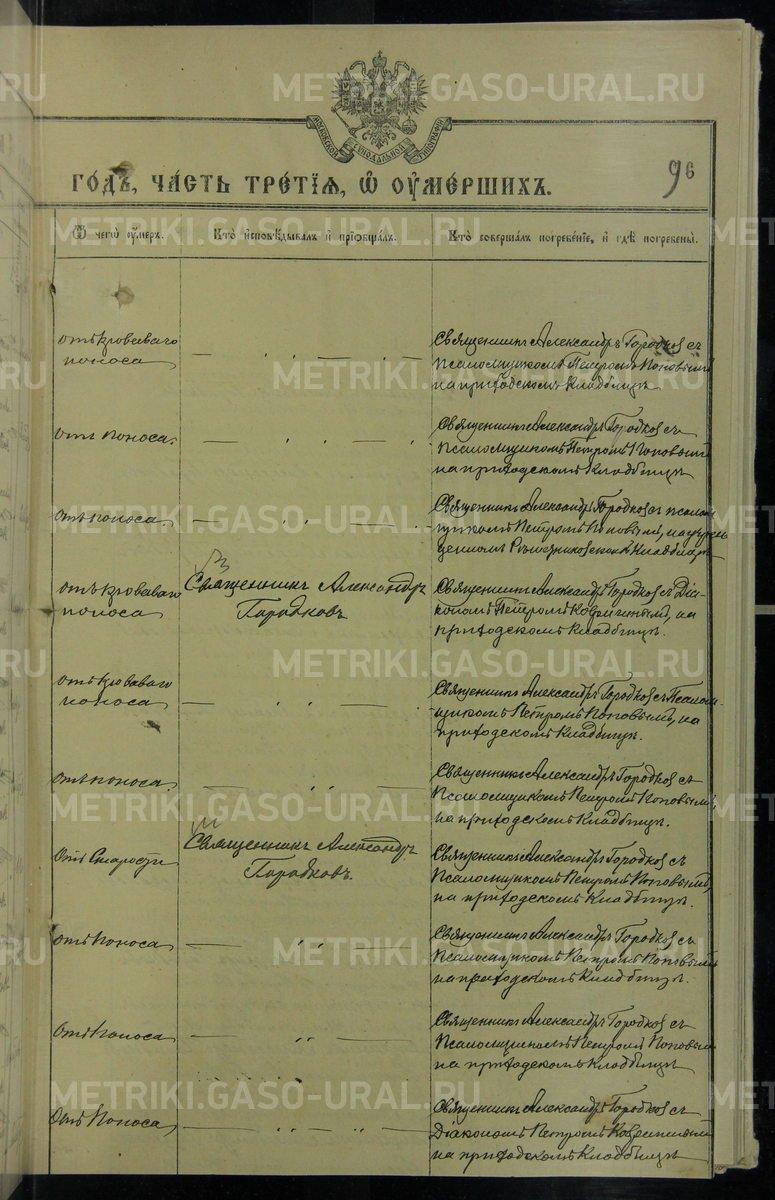 METRIKI.GASO-URAL.RU
МОСКОВСКОЙ СѴНОДАЛЬНОЙ ТИПОГРАФІИ
ГОДЪ, ЧАСТЬ ТРЕТІЯ, Ѿ ОУМЕРШИХЪ.
96
Ѿ чегѡ оумеръ.
Кто исповѣдывалъ и прїобщалъ.
Кто совершалъ погребенїе, и гдѣ погребены.
отъ кроваваго
поноса
Священникъ Александръ Городков съ
псаломщикомъ Петромъ Поповымъ
на приходскомъ кладбищѣ
отъ поноса.
Священникъ Александръ Городков съ
псаломщикомъ Петромъ Поповымъ
на приходскомъ кладбищѣ
METRIKI.GASO-URAL.RU
отъ поноса.
Священникъ Александръ Городков съ псалом-
щикомъ Петромъ Поповымъ, на
кладбищѣ
отъ кроваваго
поноса
Священникъ Александръ
Городковъ
Священникъ Александръ Городков съ Діа-
кономъ Петромъ на
приходскомъ кладбищѣ.
METRIKI.GASO-URAL.RU
отъ кроваваго
поноса
Священникъ Александръ Городков съ Псалом-
щикомъ Петромъ Поповымъ, на
приходскомъ кладбищѣ.
отъ поноса.
Священникъ Александръ Городков съ
Псаломщикомъ Петромъ Поповымъ,
на приходскомъ кладбищѣ.
METRIKI.GASO-URAL.RU
Отъ Старости
Священникъ Александръ
Городковъ.
Священникъ Александръ Городков съ
Псаломщикомъ Петромъ Поповымъ,
на приходскомъ кладбищѣ.
отъ поноса
Священникъ Александръ Городков съ
Псаломщикомъ Петромъ Поповымъ
на приходскомъ кладбищѣ.
METRIKI.GASO-URAL.RU
Отъ Поноса
Священникъ Александръ Городков съ
Псаломщикомъ Петромъ Поповымъ
на приходскомъ кладбищѣ
METRIKI.GASO-URAL.RU
Отъ Поноса
Священникъ Александръ Городков съ
Діакономъ Петромъ
на приходскомъ кладбищѣ